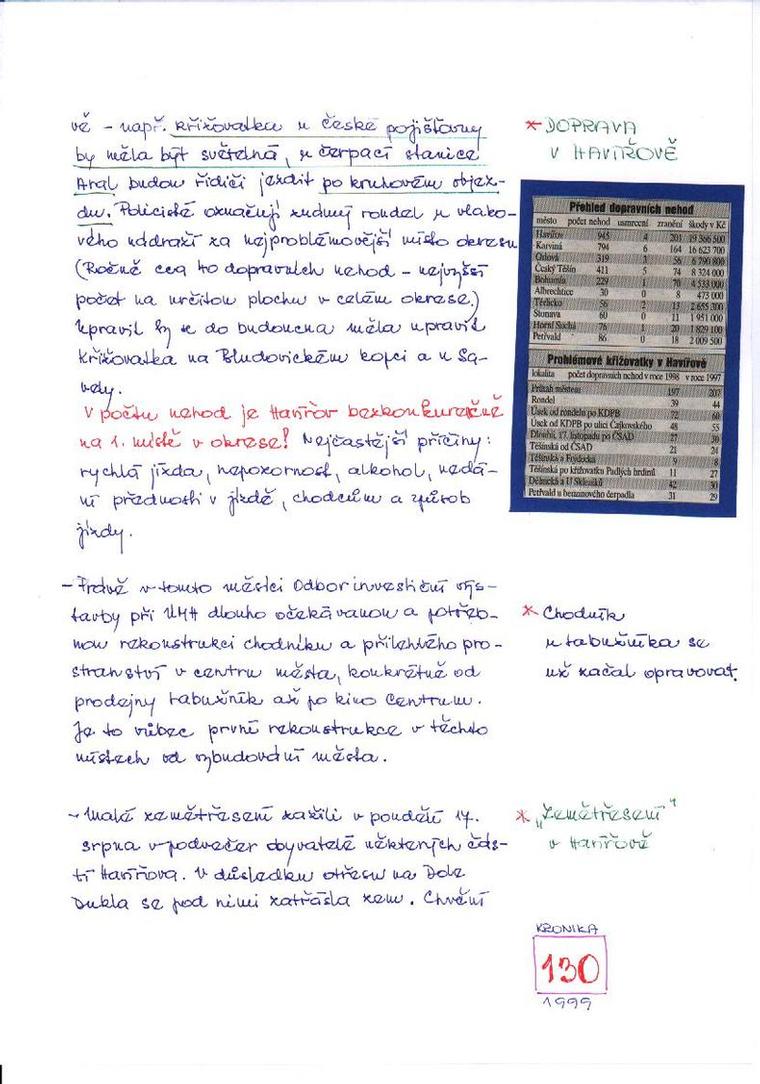 vě – např. křižovatka u české pojišťovny
by měla být světelná, u čerpací stanice
Aral budou řidiči jezdit po kruhovém objez-
du. Policisté označují známý rondel u vlako-
vého nádraží za nejproblémovější místo okresu
(Ročně cca 40 dopravních nehod – nejvyšší
počet na určitou plochu v celém okrese.)
Upravil by se do budoucna měla upravit
křižovatka na Bludovickém kopci a u Sa-
vedy.
V počtu nehod je Havířov bezkonkurenčně
na 1. místě v okrese! Nejčastější příčiny:
rychlá jízda, nepozornost, alkohol, nedá-
ní přednosti v jízdě, chodcům a způsob
jízdy.
* DOPRAVA
V HAVÍŘOVĚ
Přehled dopravních nehod
město počet nehod usmrcení zranění škody v Kč
Havířov 945 4 201 19 366 500
Karviná 794 6 164 16 623 700
Orlová 319 3 56 6 790 800
Český Těšín 411 5 74 8 324 000
Bohumín 229 1 70 4 533 000
Albrechtice 30 0 8 473 000
Těrlicko 56 2 13 2 655 300
Stonava 60 0 11 1 951 000
Horní Suchá 76 1 20 1 829 100
Petřvald 86 0 18 2 009 500
Problémové křižovatky v Havířově
lokalita počet dopravních nehod v roce 1998 v roce 1997
Průtah městem 197 207
Rondel 39 44
Úsek od rondelu po KDPB 72 60
Úsek od KDPB po ulici Čajkovského 48 55
Dlouhá, 17. listopadu po ČSAD 27 30
Těšínská od ČSAD 21 24
Těšínská a Fojtocká 9 8
Těšínská po křižovatku Padlých hrdinů 11 27
Dělnická a U Skleníků 42 30
Petřvald u benzinového čerpadla 31 29
– Právě v tomto měsíci Odbor investiční výs-
tavby při MMH dlouho očekávanou a potřeb-
nou rekonstrukci chodníku a přilehlého pro-
stranství v centru města, konkrétně od
prodejny tabužník až po kino Centrum.
Je to vůbec první rekonstrukce v těchto
místech od vybudování města.
* Chodník
u tabužníka se
už začal opravovat.
– Malé zemětřesení zažili v pondělí 17.
srpna v podvečer obyvatelé některých čás-
tí Havířova. V důsledku otřesu na Dole
Dukla se pod nimi zatřásla zem. Chvění
* „Zemětřesení"
v Havířově
KRONIKA
130
1999